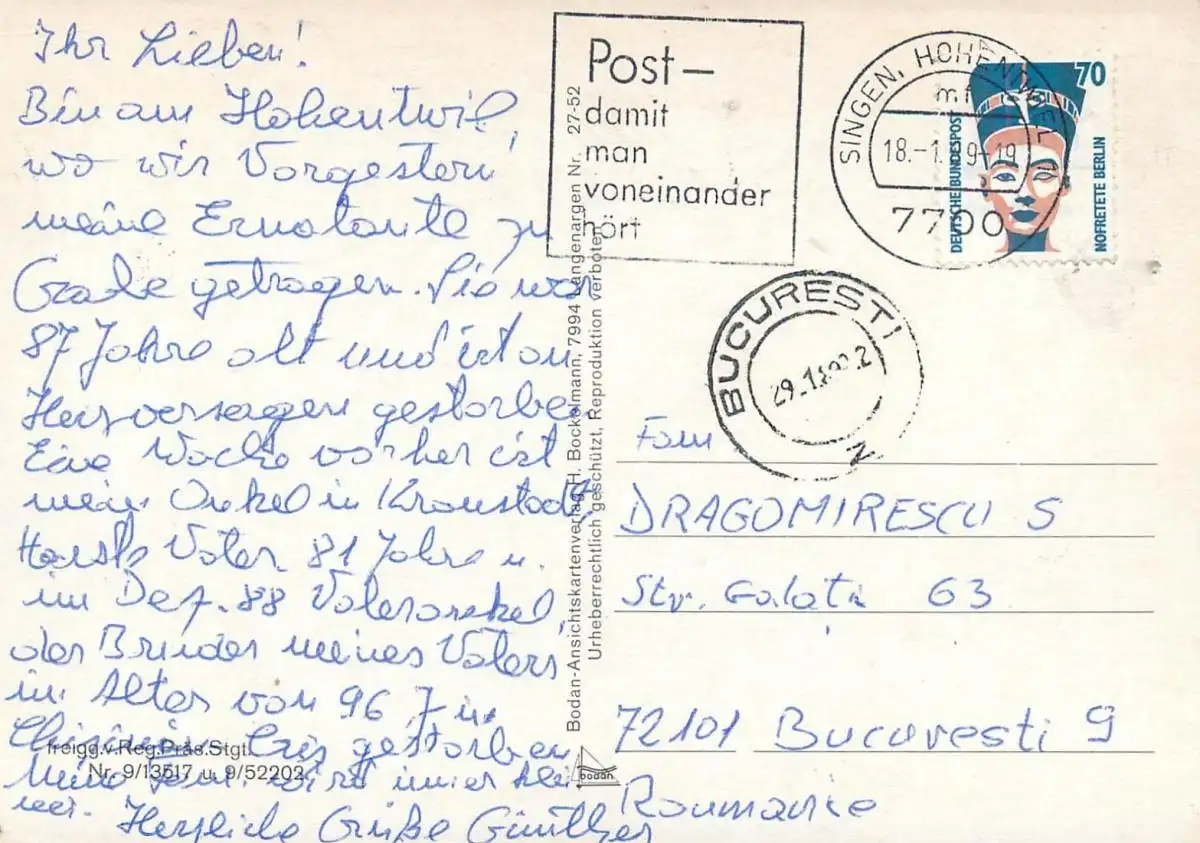 Ihr Lieben!
Bin am Hohentwil,
wo wir Vorgestern
meine Erna tante zu
Grabe getragen. Sie war
87 Jahre alt und ist an
Herzversagen gestorben
Eine Woche vorher ist
mein Onkel in Kronstadt,
Horsts Vater 81 Jahre u.
im Dez. 88 Vateronkel,
der Bruder meines Vaters
im Alter von 96 J in
gestorben
Meine Fam. wird immer klei
ner. Herzliche Grüße Günther
freigg.v.Reg.Präs.Stgt.
Nr. 9/13517 u. 9/52202
Bodan-Ansichtskartenverlag H. Bockelmann, 7994 Langenargen Nr. 27-52
Urheberrechtlich geschützt, Reproduktion verboten
bodan
Post –
damit
man
voneinander
hört
SINGEN, HOHENTWIEL
18.-1. 9-19
7700
70
DEUTSCHE BUNDESPOST
NOFRETETE BERLIN
BUCURESTI
Fam
DRAGOMIRESCU S
Str. Galati 63
72101 Bucuresti 9
Roumanie